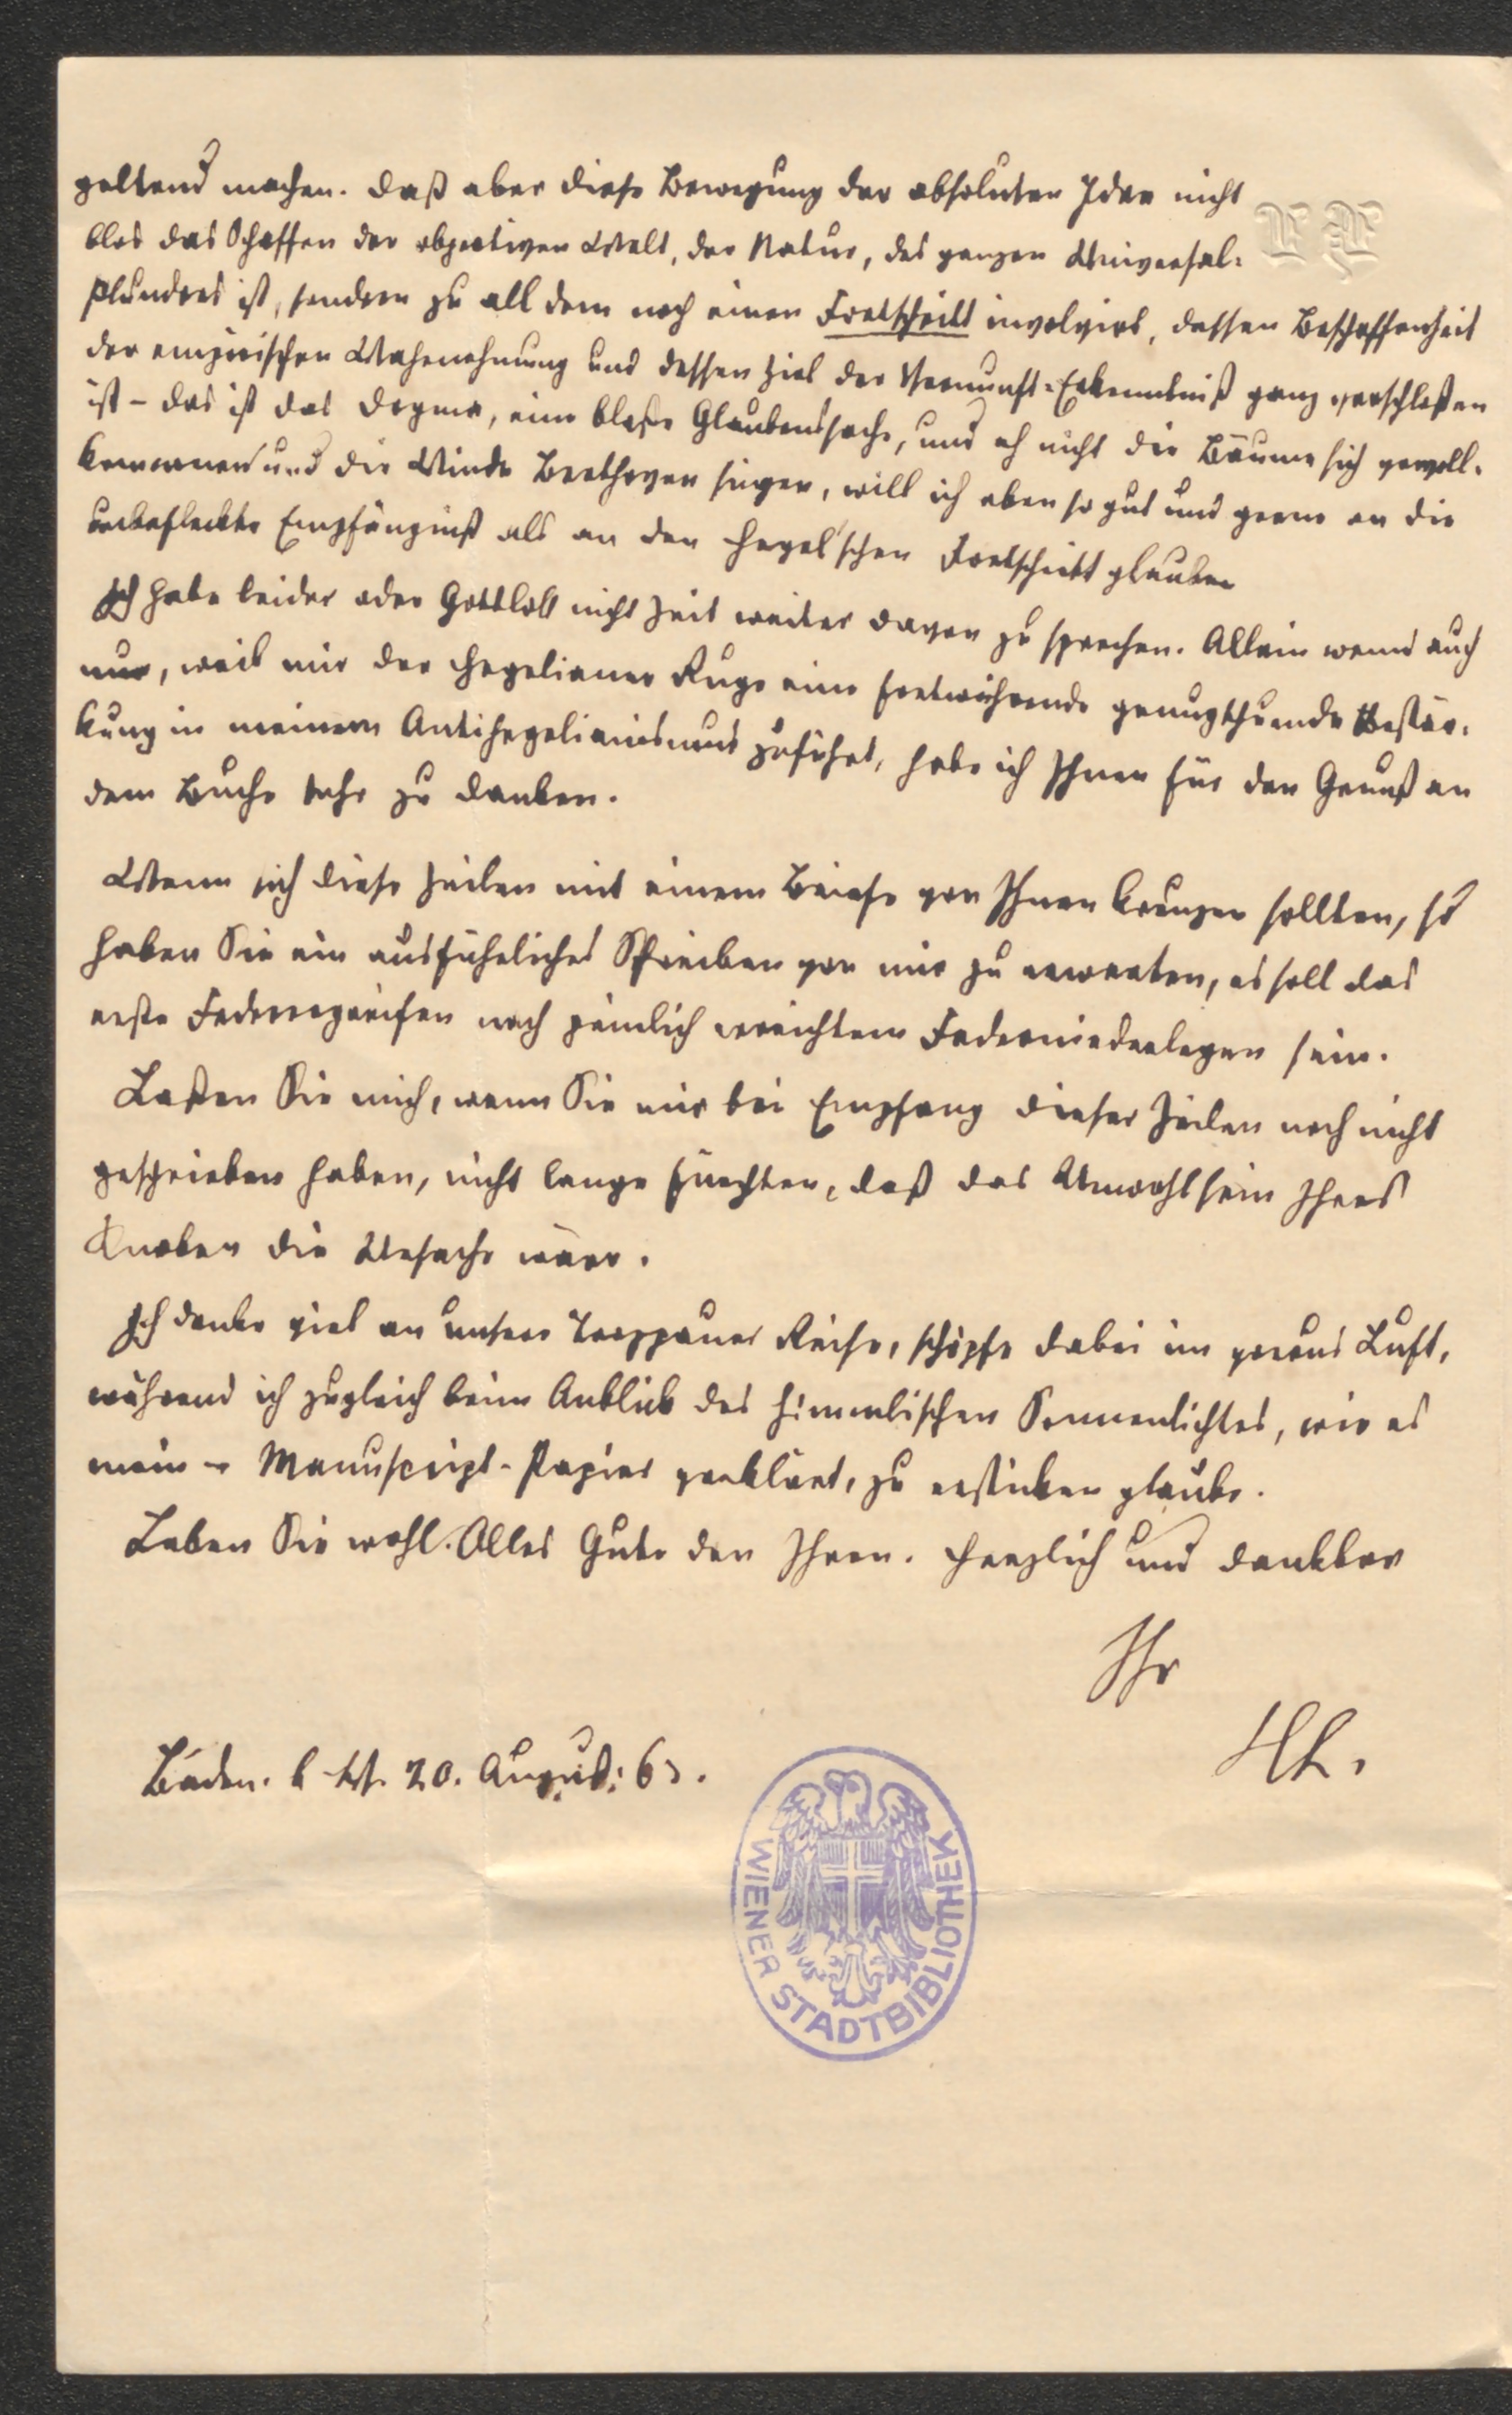 geltend machen. Daß aber diese Bewegung der absoluten Idee nicht
blos das Schaffen der objectiven Welt, der Natur, des ganzen Universal-
plunders ist, sondern zu all dem noch einen Fortschritt involvirt, dessen Beschaffenheit
der empirischen Wahrnehmung und dessen Ziel der Vernunft-Erkenntniß ganz verschloßen
ist – das ist das Dogma, eine bloße Glaubenssache, und eh nicht die Bäume sich vervoll-
kommnen und die Winde Beethoven singen, will ich eben so gut und gerne an die
unbefleckte Empfängniß als an den Hegel'schen Fortschritt glauben
Ich habe leider oder Gottlob nicht Zeit weiter davon zu sprechen. Allein wenn auch
nur, weil mir der Hegelianer Ruge eine fortwährende genugthuende Bestär-
kung in meinem Antihegelianismus zuführt, habe ich Ihnen für den Genuß an
dem Buche sehr zu danken.
Wenn sich diese Zeilen mit einem Briefe von Ihnen kreuzen sollten, so
haben Sie ein ausführliches Schreiben von mir zu erwarten, es soll das
erste Federergreifen nach peinlich erreichtem Federniederlegen sein.
Laßen Sie mich, wenn Sie mir bei Empfang dieser Zeilen noch nicht
geschrieben haben, nicht lange fürchten, daß das Unwohlsein Ihres
Knaben die Ursache wäre.
Ich denke viel an unsere Troppauer Reise, schöpfe dabei im voraus Luft,
während ich zugleich beim Anblick des himmlischen Sonnenlichtes, wie es
mein – Manuscript-Papier verklärt, zu ersticken glaube.
Leben Sie wohl. Alles Gute den Ihren. Herzlich und dankbar
Ihr
HL.
Baden. b W. 20. August. 63.
WIENER STADTBIBLIOTHEK